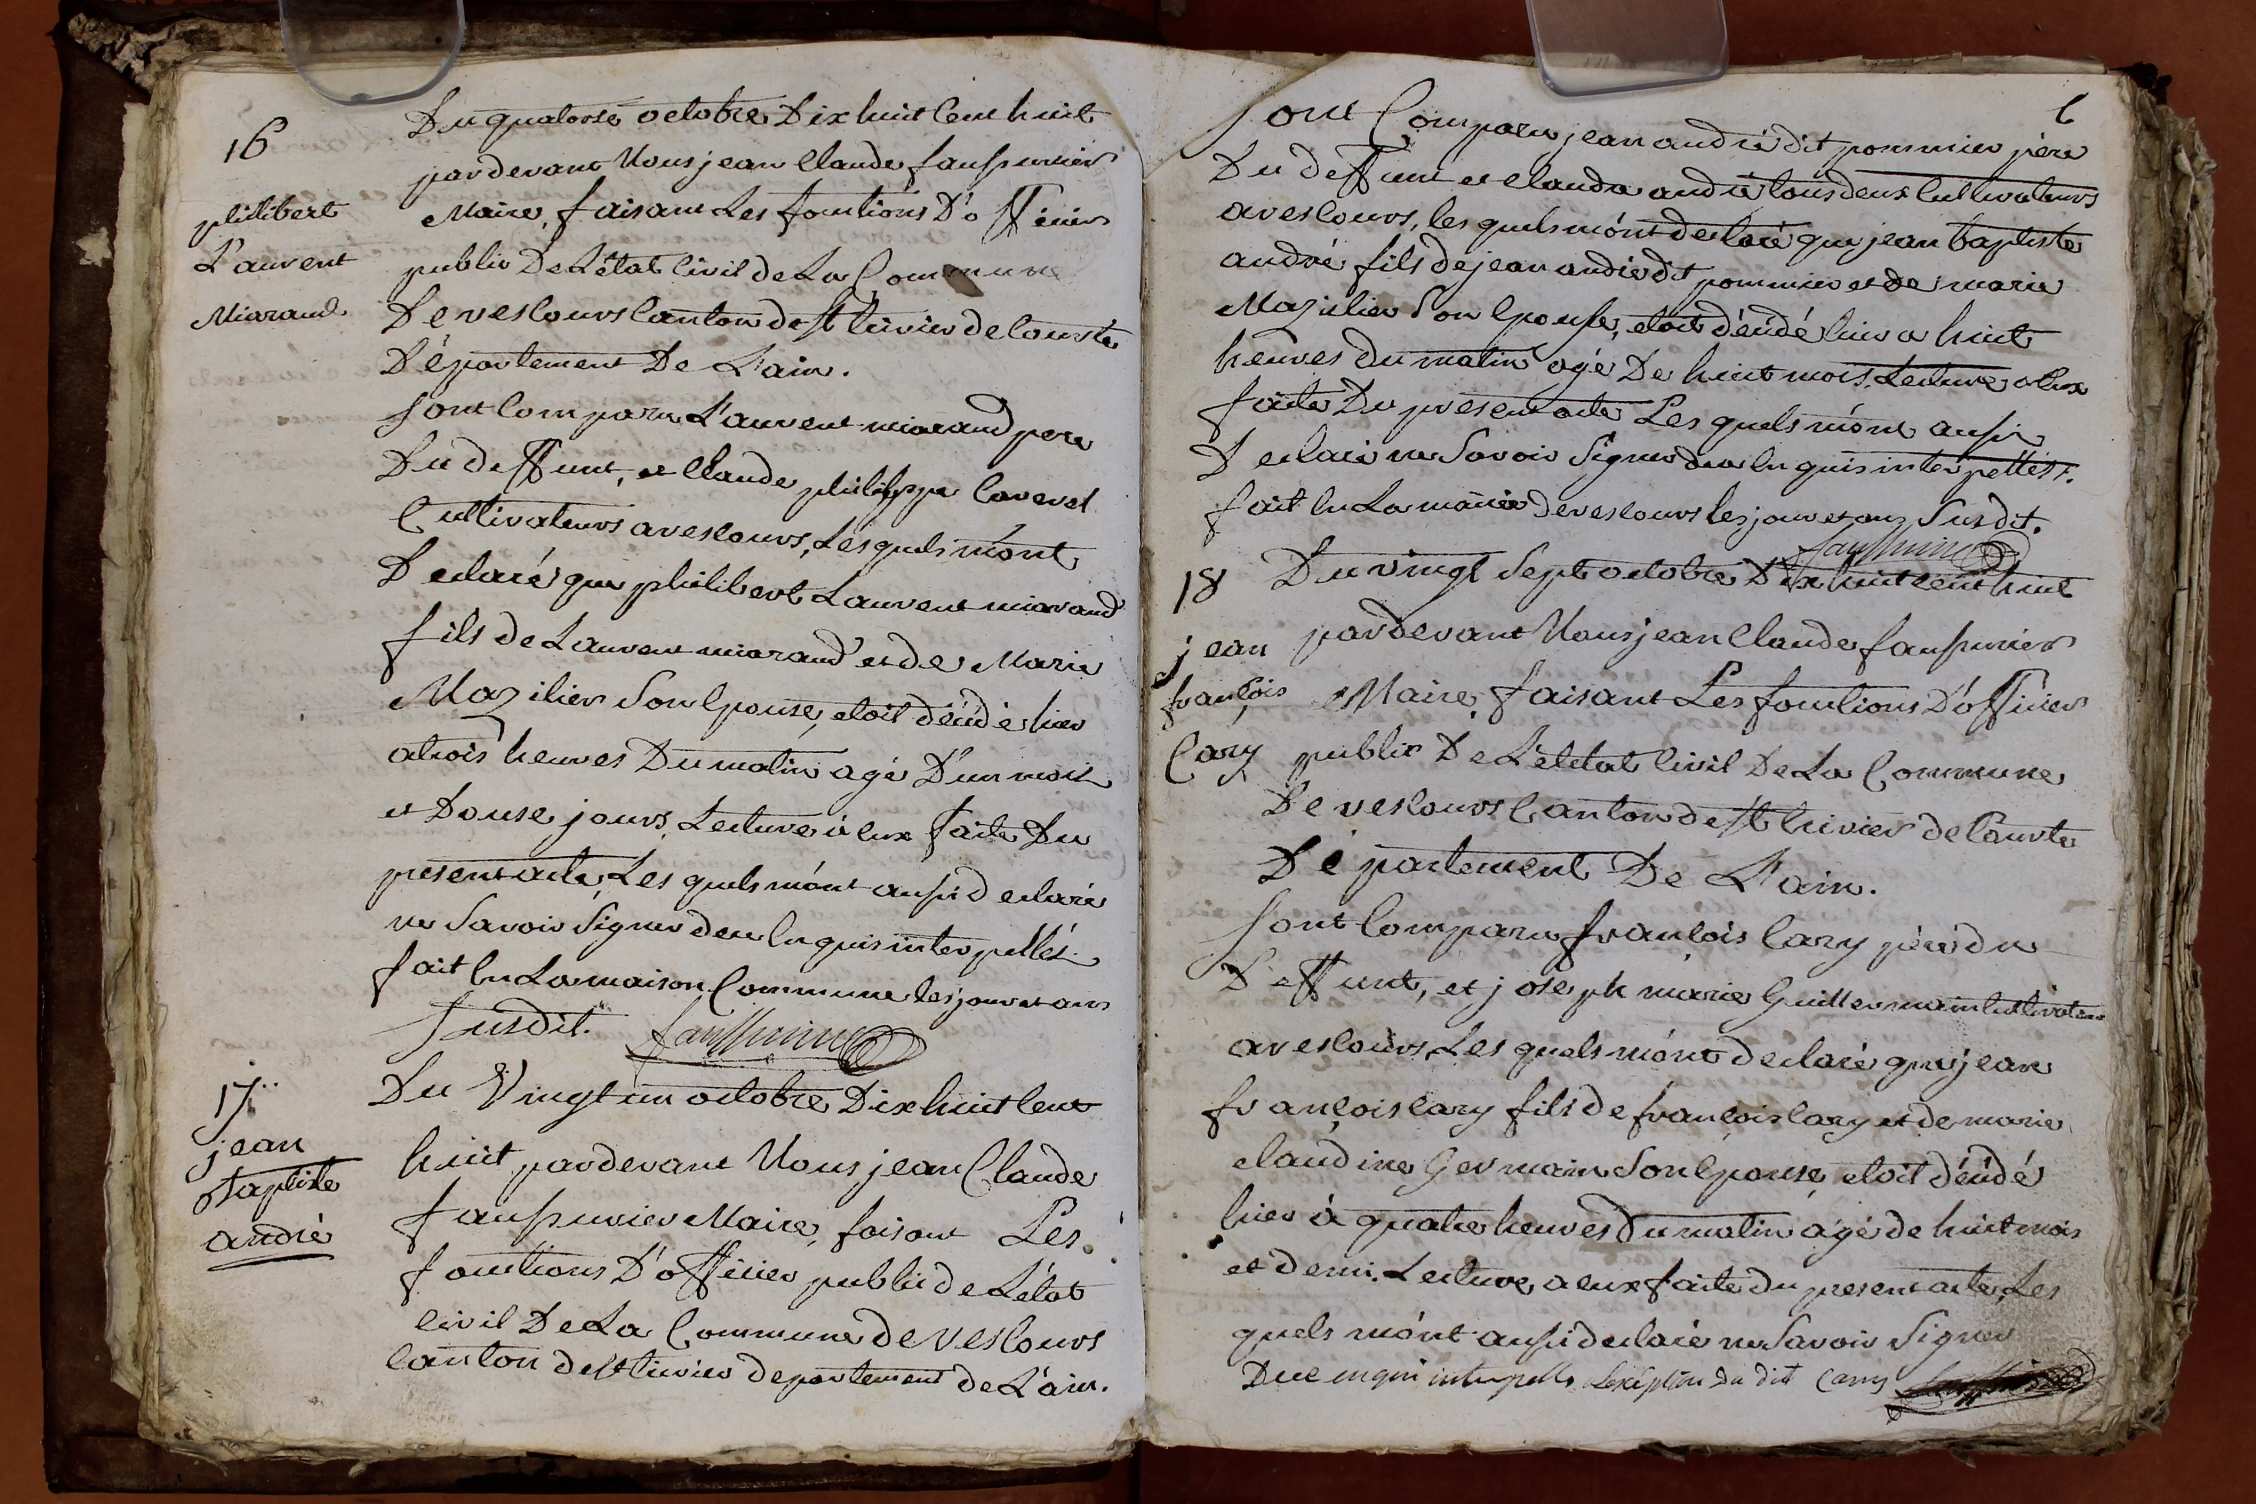 16
philibert
Laurent
Miarand
Du quatorse octobre Dix huit Cent huit
pardevant Nous jean Claude faussurier
Maire, faisant Les fonctions D'officier
public De L'état Civil de La Commune
De vescours Canton de St trivier de Courte
Département De L'ain.
Sont Comparu Laurent miarand pere
Du deffunt, et Claude philippe Caverel
Cultivateurs a vescours, Lesquels m'ont
Declaré que philibert Laurent miarand
fils de Laurent miarand et de Marie
Mazilier Son Epouse, etoit décédé hier
a trois heures Du matin agé D'un mois
et Douse jours, Lecture à Eux faite Du
present acte, Les quels m'ont aussi declaré
ne Savoir Signer de ce Enquis interpellés
fait En La maison Commune les jour et ans
Susdit.
17
jean
Baptiste
andré
Du Vingt un octobre Dix huit Cent
huit pardevant Nous jean Claude
faussurier Maire, faisant Les
fonctions D'officier public de L'état
Civil De La Commune de vescours
Canton de St trivier departement de L'ain.
Sont Comparu jean andré dit pommier père
Du deffunt et Claude andré tous deux Cultivateurs
a vescours, les quels m'ont declaré que jean baptiste
andré fils de jean andré dit pommier et de marie
Mazilier Son Epouse, etoit décédé hier a huit
heures Du matin agé De huit mois, Lecture a Eux
faite Du present acte Les quels m'ont aussi
Declaré ne Savoir Signer de ce Enquis interpellés.
fait En La mairie de vescours les jour et ans Susdit.
18
jean
françois
Cary
Du vingt Sept octobre Dix huit cent huit
pardevant Nous jean Claude faussurier
Maire, faisant Les fonctions D'officier
public De L'etetat Civil De La Commune
De vescours Canton de St trivier de Courte
Département De L'ain.
Sont Comparu françois Cary père du
Deffunt, et joseph marie Guillermain Cultivateurs
a vescours, Les quels m'ont declaré que jean
françois cary fils de françois cary et de marie
claudine Germain Son Epouse etoit décédé
hier à quatre heures Du matin agé de huit mois
et demi. Lecture a eux faite du present acte, Les
quels m'ont aussi declaré ne Savoir Signer
De ce enquis interpellé Lexeption du dit Cary